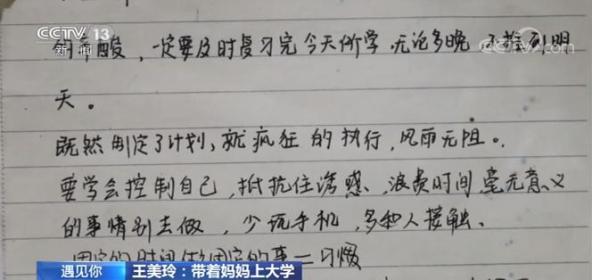 CCTV 13
新闻
央视网
酸，一定要及时复习完今天所学，无论多晚 不推到明
天。
既然制定了计划，就疯狂的执行，风雨无阻。
要学会控制自己，抵抗住诱惑、浪费时间毫无意义
的事情别去做，少玩手机，多和人接触、
固定的时间做固定的事—习惯
遇见你 王美玲：带着妈妈上大学